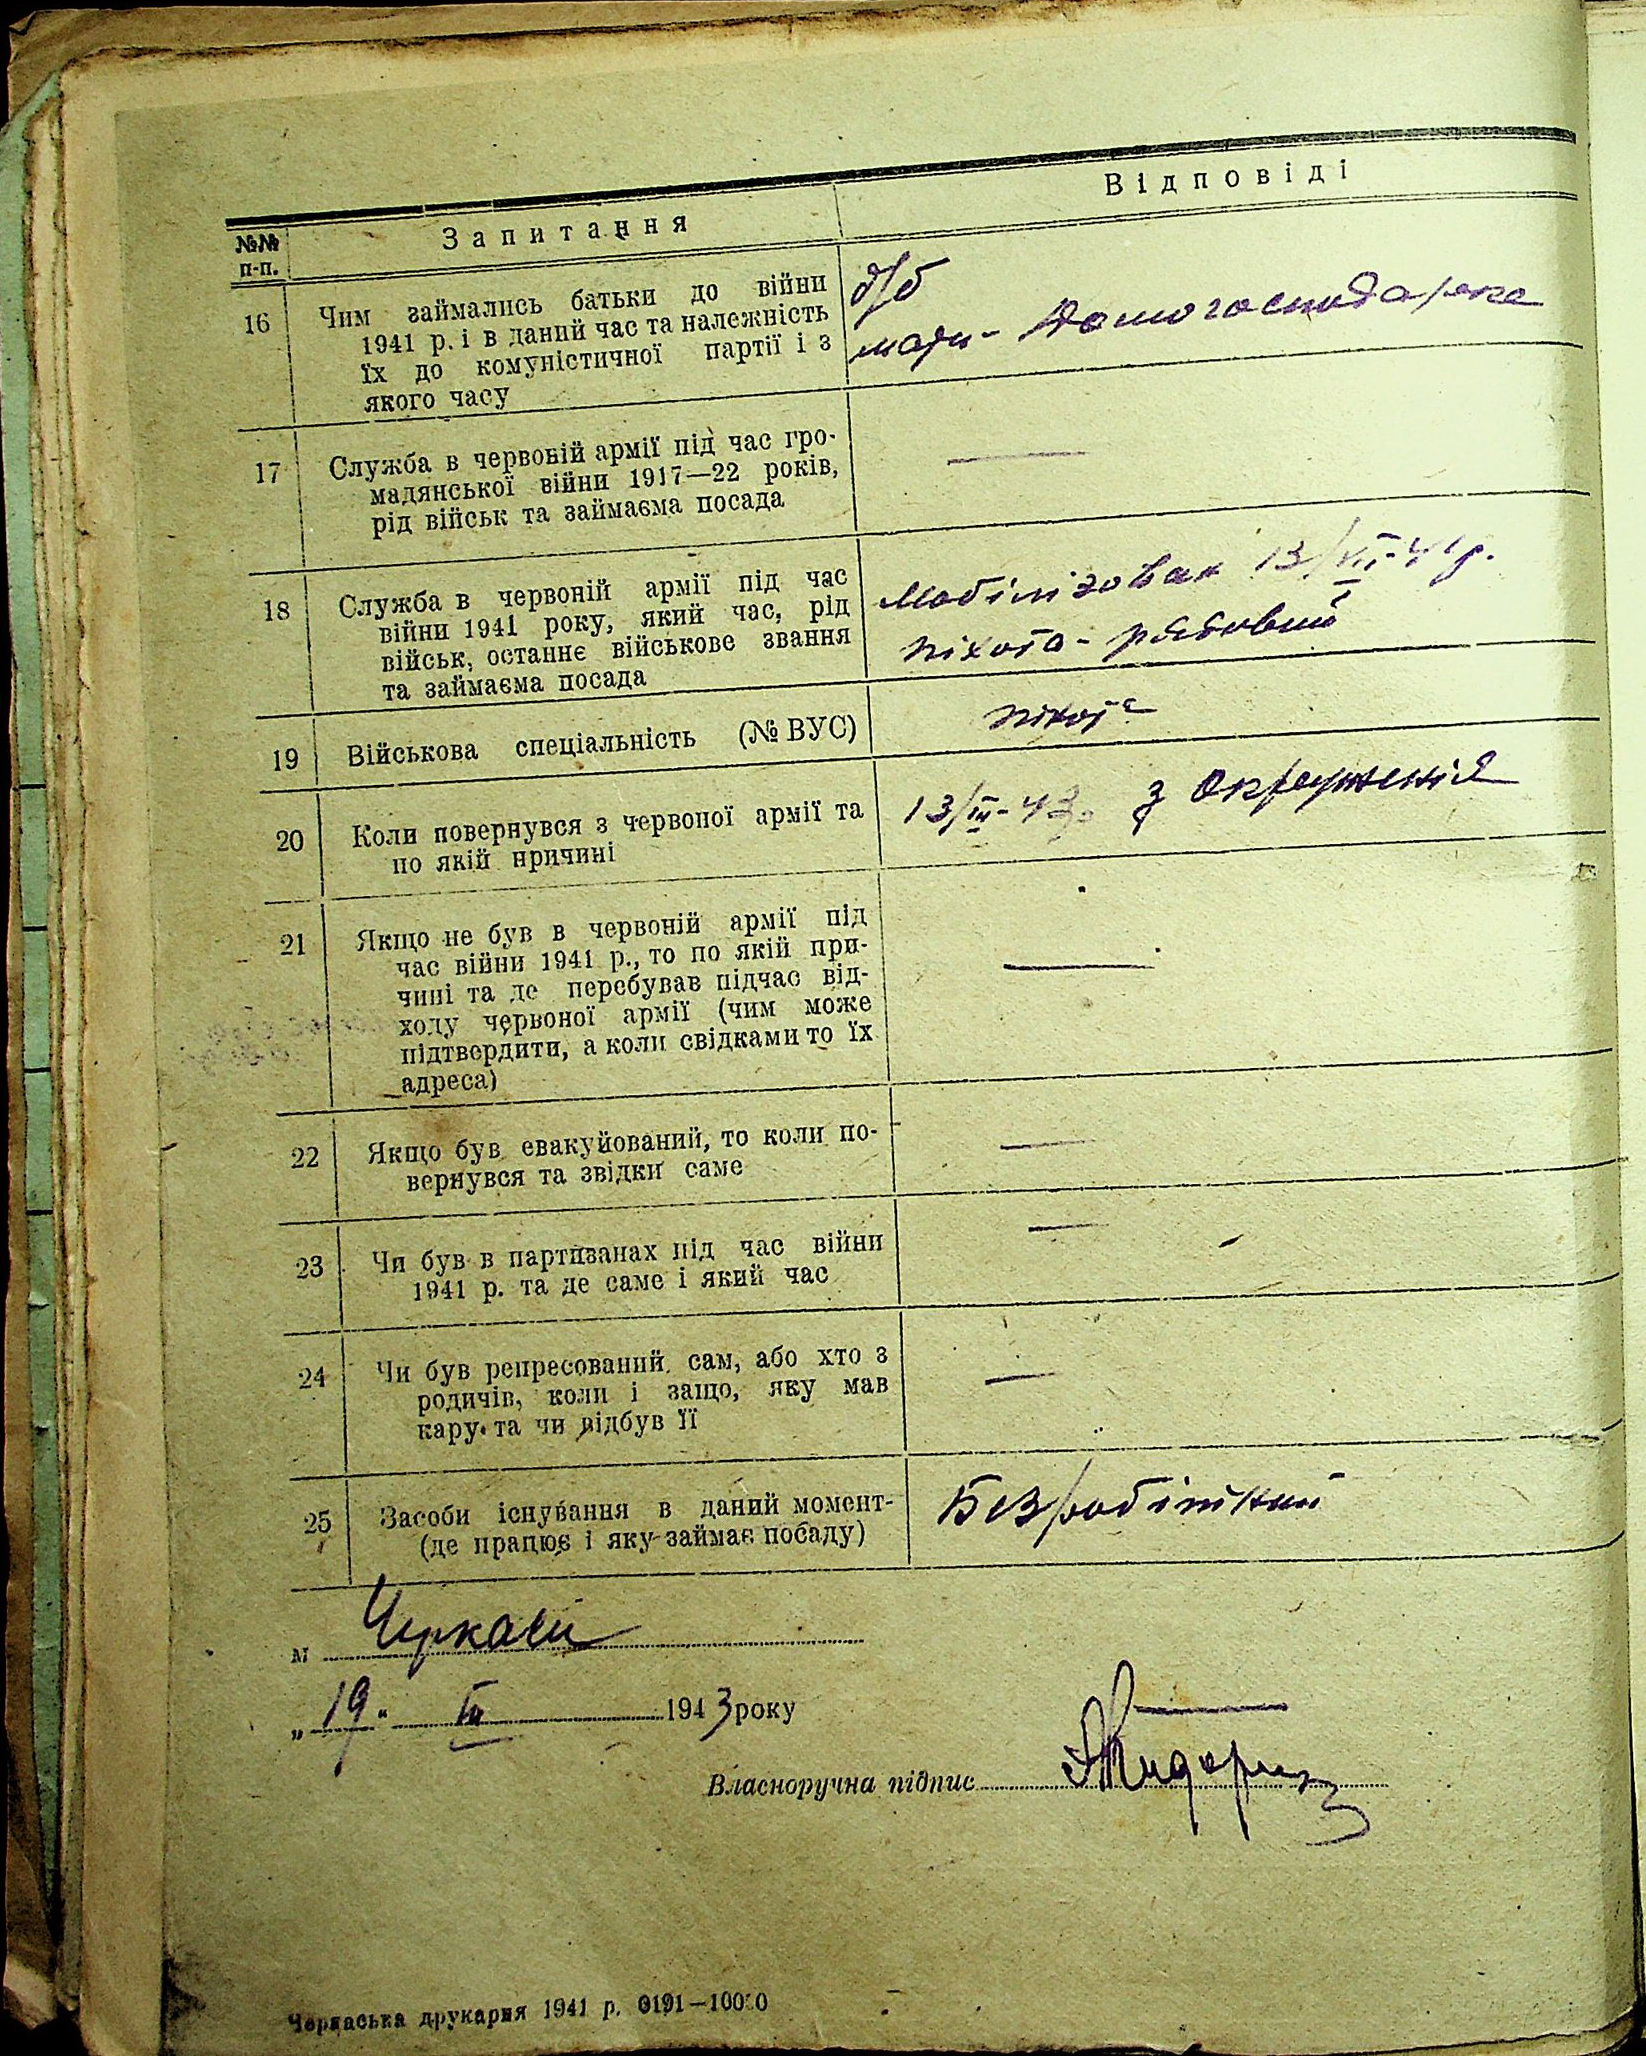 №№
п-п.
Запитання
Відповіді
16
Чим займались батьки до війни
1941 р. і в даний час та належність
їх до комуністичної партії і з
якого часу
б/б
мати - Домогосподарка
17
Служба в червоній армії під час гро-
мадянської війни 1917—22 років,
рід військ та займаєма посада
—
18
Служба в червоній армії під час
війни 1941 року, який час, рід
військ, останнє військове звання
та займаєма посада
Мобілізован 13/VII-41р.
піхота - рядовий
19
Військова спеціальність (№ ВУС)
піхота
20
Коли повернувся з червоної армії та
по якій причині
13/III-43р. з окруженія
21
Якщо не був в червоній армії під
час війни 1941 р., то по якій при-
чині та де перебував підчас від-
ходу червоної армії (чим може
підтвердити, а коли свідками то їх
адреса)
—
22
Якщо був евакуйований, то коли по-
вернувся та звідки саме
—
23
Чи був в партизанах під час війни
1941 р. та де саме і який час
—
24
Чи був репресований сам, або хто з
родичів, коли і защо, яку мав
кару та чи відбув її
—
25
Засоби існування в даний момент-
(де працює і яку займає посаду)
Безробітний
м Черкаси
„19“ III 1943 року
Власноручна підпис
Черкаська друкарня 1941 р. 0191—10000